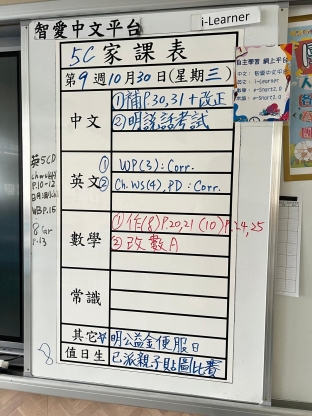 智愛中文平台
i-Learner
5C 家課表
第9週10月30日(星期三)
中文
①補P.30,31+改正
②明謎語考試
英文
① WP(3):Corr.
② Ch.WS(4),PD:Corr.
數學
①作(8)P.20,21 (10)P.24,25
②改數A
常識
其它
明公益金便服日
值日生
已派親子貼圖比賽
英5CD
P.10-12
WB P.15
8 Gr
P.13
自主學習 網上平台
中文:智愛中文平台
英文:i-Learner
數學:e-Smart2.0
常識:e-Smart2.0